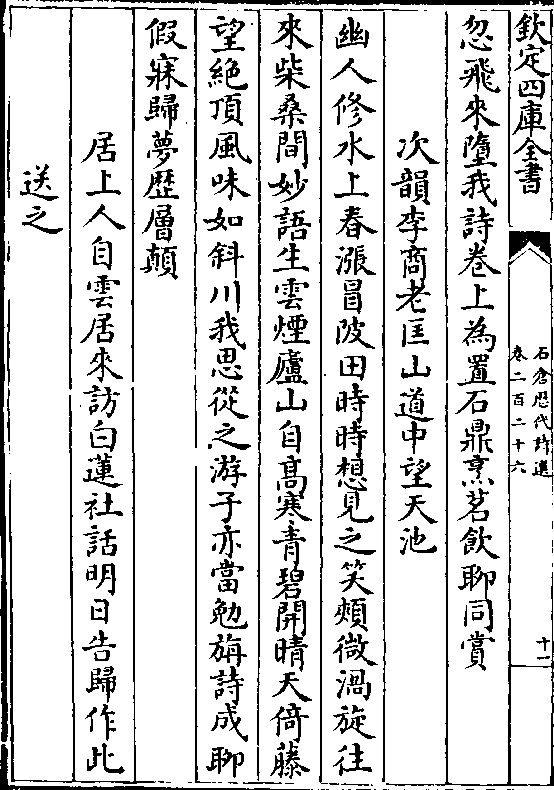 欽定四庫全書
石倉歴代詩選
卷二百二十六
十一
忽飛來墮我詩卷上為置石鼎烹茗飲聊同賞
次韻李商老匡山道中望天池
幽人修水上春漲冒陂田時時想見之笑頰微渦旋往
來柴桑間妙語生雲煙廬山自高寒青碧開晴天倚藤
望絶頂風味如斜川我思從之游子亦當勉旃詩成聊
假寐歸夢歴層顛
居上人自雲居來訪白蓮社話明日告歸作此
送之